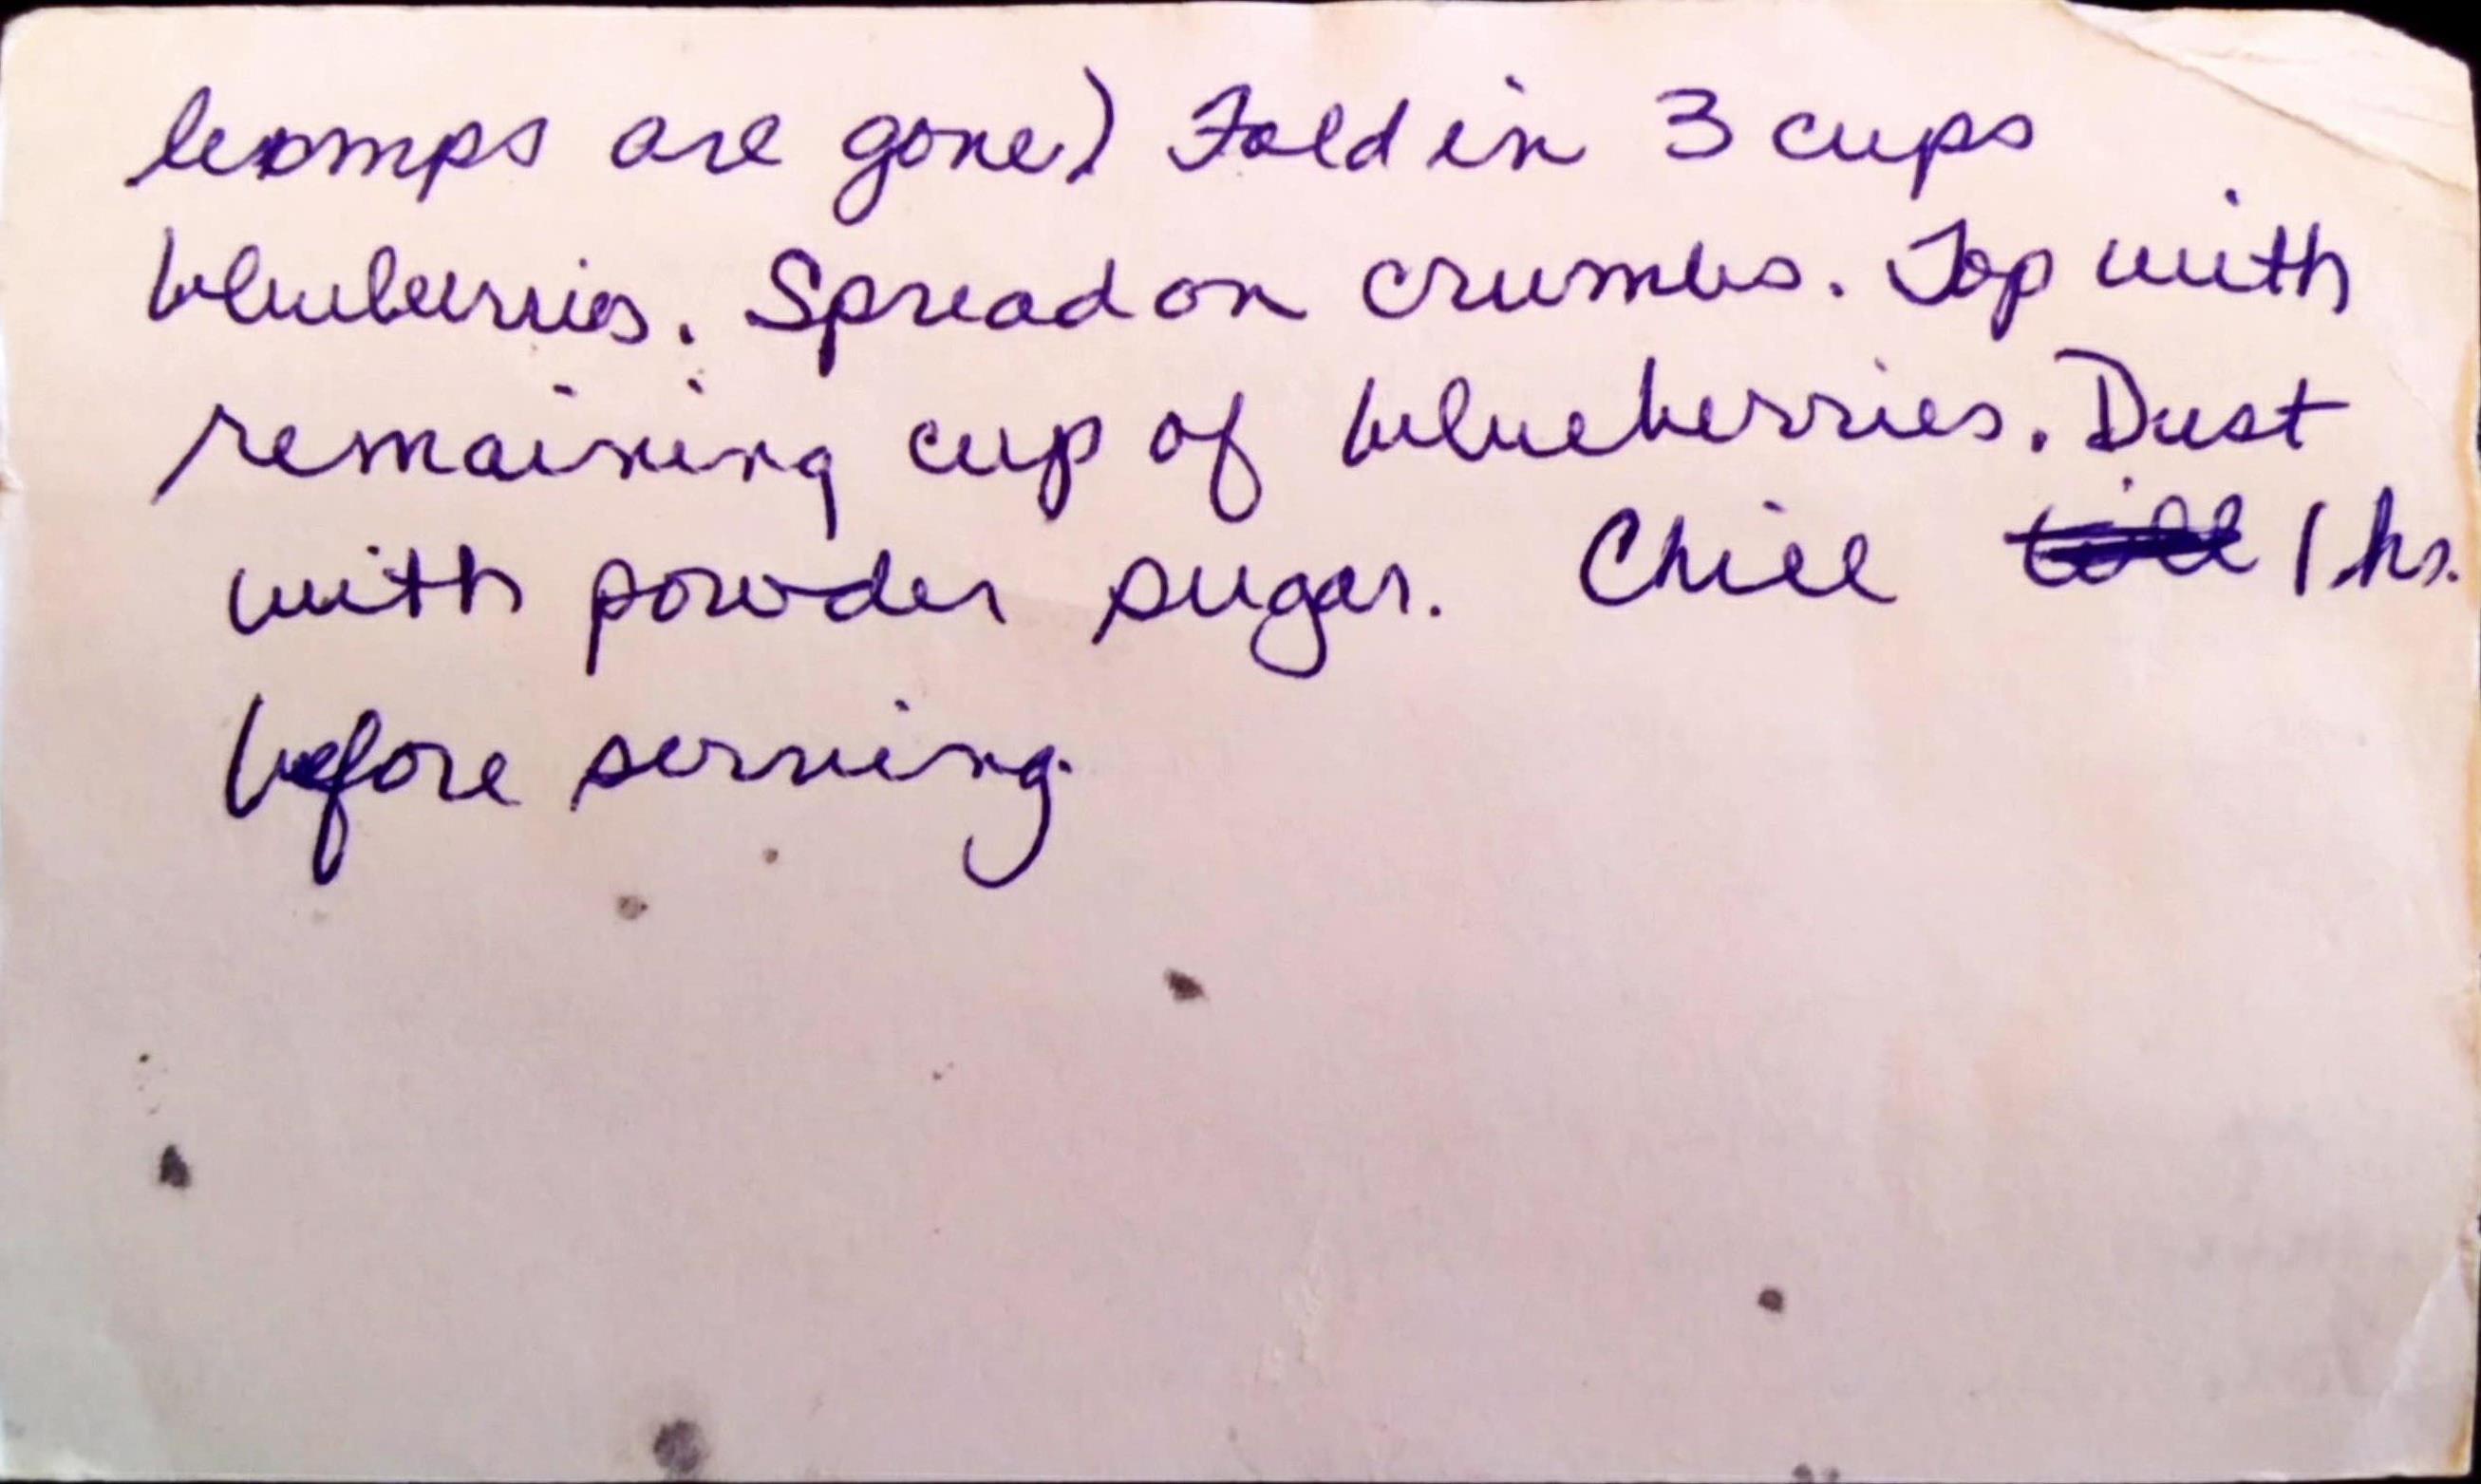 lumps are gone) Fold in 3 cups
blueberries. Spread on crumbs. Top with
remaining cup of blueberries. Dust
with powder sugar. Chill till 1 hr.
before serving.